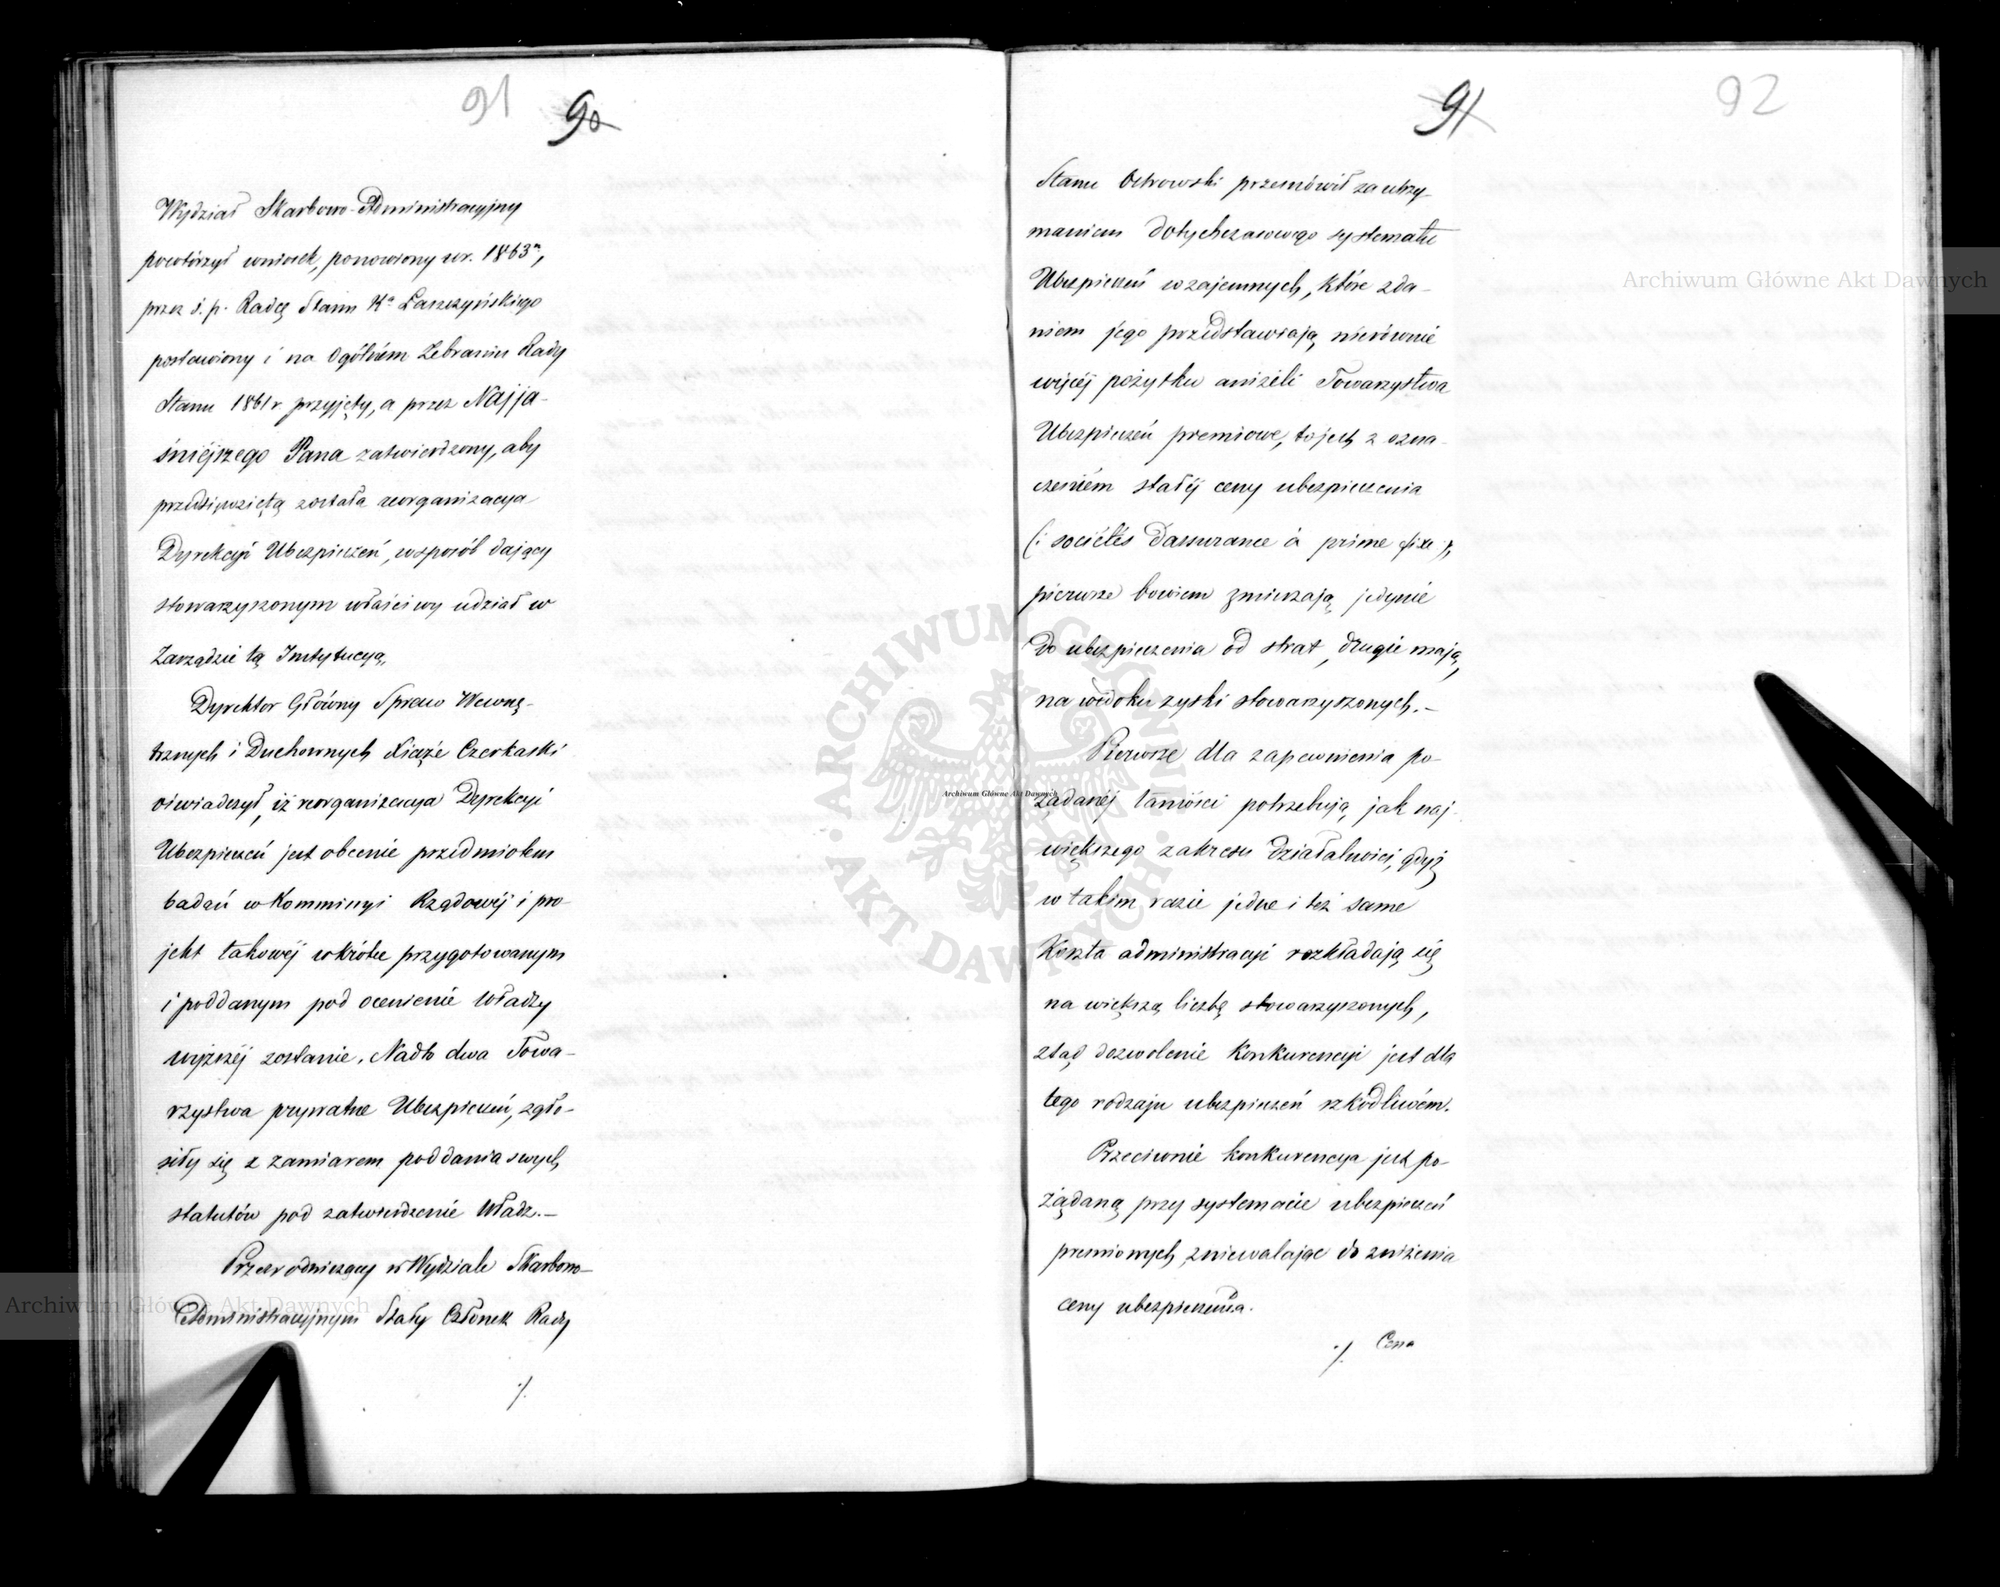 91 90
Wydział Skarbowo-Administracyjny
powtórzył wniosek, ponowiony w r. 1863ⁿ,
przez ś. p. Radcę Stanu Kª Łaszczyńskiego
postawiony i na Ogólném Zebraniu Rady
Stanu 1861 r. przyjęty, a przez Najja-
śniéjszego Pana zatwierdzony, aby
przedsięwziętą została reorganizacya
Dyrekcyi Ubezpieczeń, w sposób dający
stowarzyszonym właściwy udział w
Zarządzie tą Instytucyą.
Dyrektor Główny Spraw Wewnę-
trznych i Duchownych Xiąże Czerkaski
oświadczył, iż reorganizacya Dyrekcyi
Ubezpieczeń jest obecnie przedmiotem
badań w Kommissyi Rządowéj i pro-
jekt takowéj wkrótce przygotowanym
i poddanym pod ocenienie Władzy
wyższéj zostanie. Nadto dwa Towa-
rzystwa prywatne Ubezpieczeń, zgło-
siły się z zamiarem poddania swych
statutów pod zatwierdzenie Władz.—
Przewodniczący w Wydziale Skarbowo-
Administracyjnym Stały Członek Rady
./.
91 92
Stanu Ostrowski przemówił za utrzy-
maniem dotychczasowego systematu
Ubezpieczeń wzajemnych, które zda-
niem jego przedstawiają nierównie
więcéj pożytku aniżeli Towarzystwa
Ubezpieczeń premiowe, to jest z ozna-
czeniem stałéj ceny ubezpieczenia
(: sociétés d'assurance à prime fixe :),
pierwsze bowiem zmierzają jedynie
do ubezpieczenia od strat, drugie mają
na widoku zyski stowarzyszonych.—
Pierwsze dla zapewnienia po-
żądanéj taniości potrzebują jak naj-
większego zakresu działalności, gdyż
w takim razie jedne i też same
Koszta administracyi rozkładają się
na większą liczbę stowarzyszonych,
ztąd dozwolenie Konkurencyi jest dla
tego rodzaju ubezpieczeń szkodliwém.
Przeciwnie konkurencya jest po-
żądaną przy systemacie ubezpieczeń
premiowych, zniewalając do zniżenia
ceny ubezpieczenia.
./. Cena
Archiwum Główne Akt Dawnych
Archiwum Główne Akt Dawnych
Archiwum Główne Akt Dawnych
· ARCHIWUM GŁÓWNE · AKT DAWNYCH